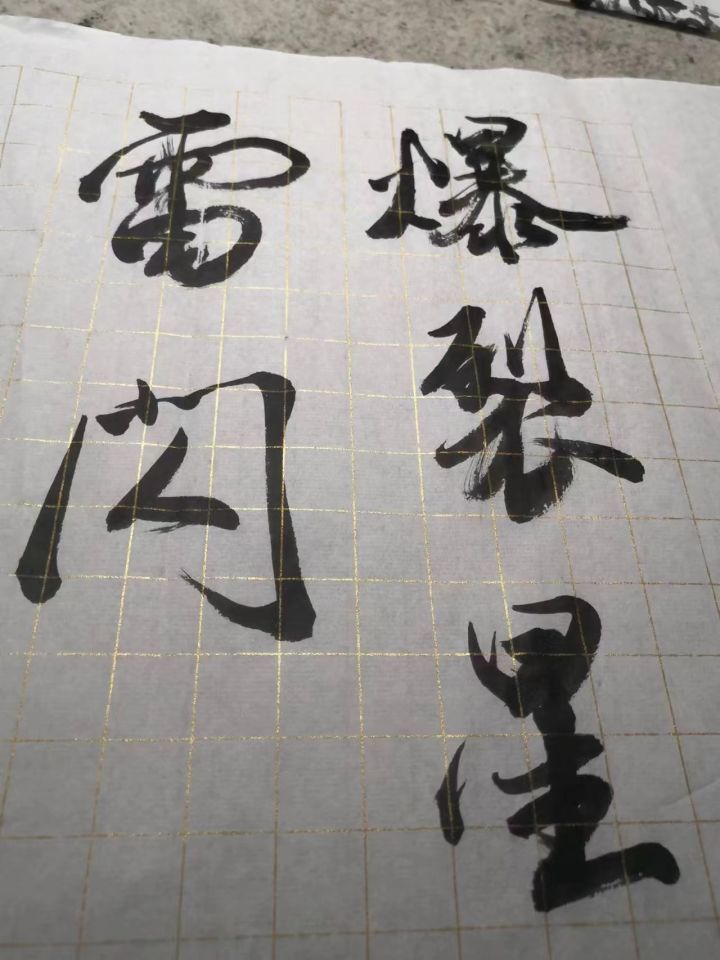 爆裂星
雷閃